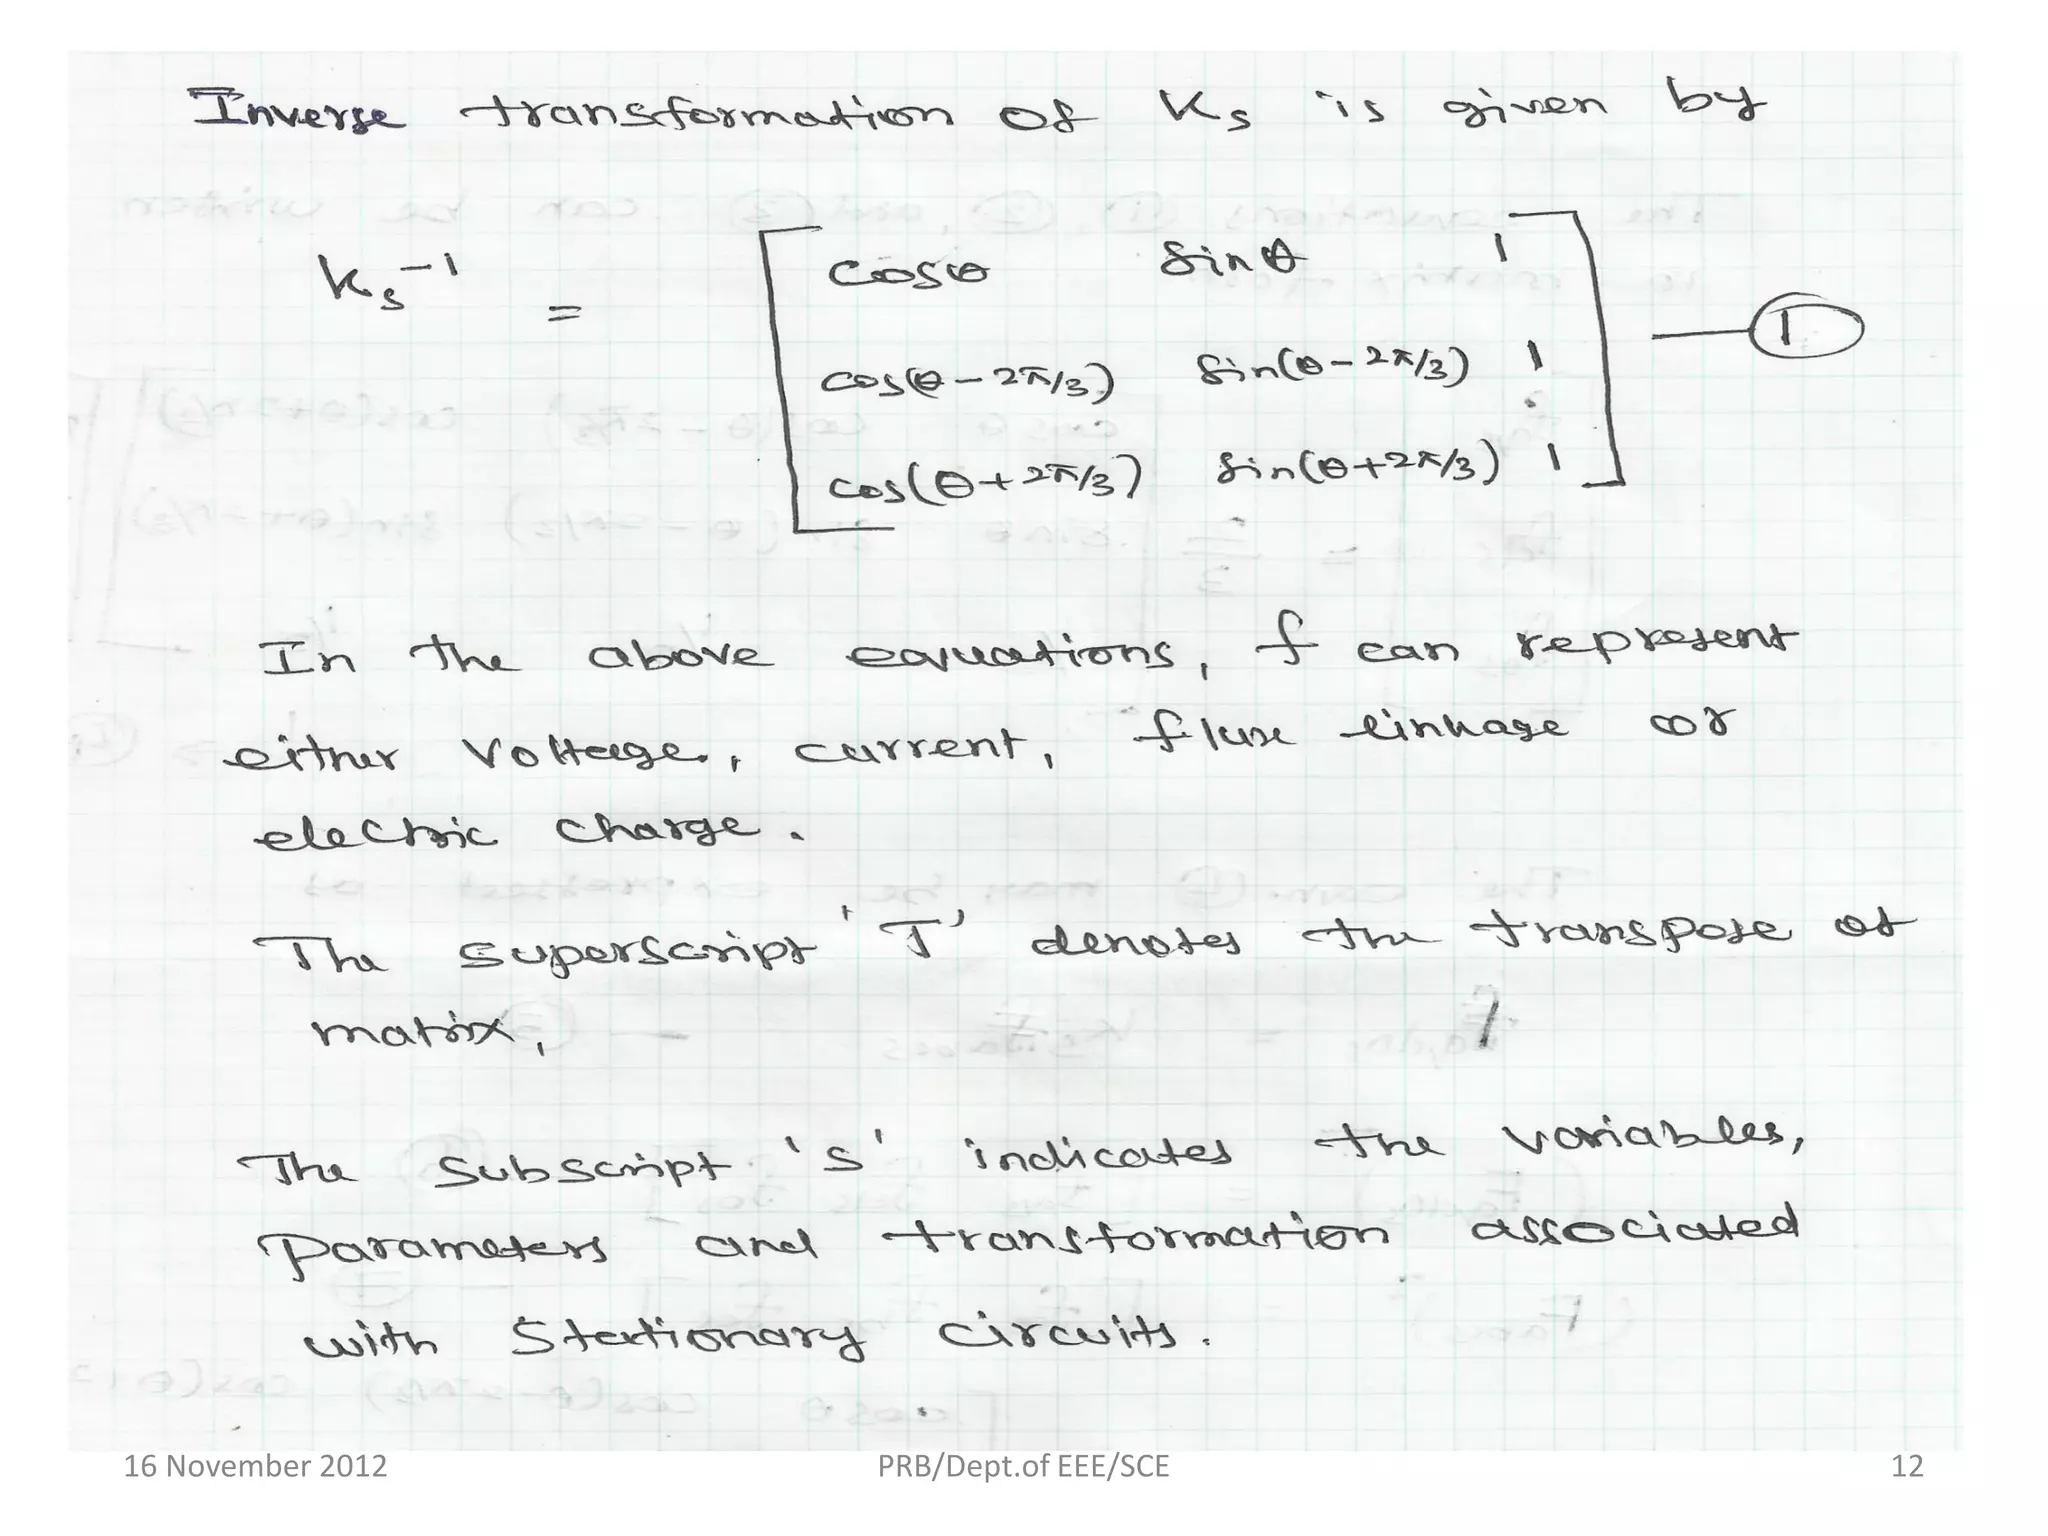 Inverse transformation of Ks is given by
Ks⁻¹ = [ cosθ sinθ 1
cos(θ-2π/3) sin(θ-2π/3) 1
cos(θ+2π/3) sin(θ+2π/3) 1 ] — ①
In the above equations, f can represent
either voltage, current, flux linkage or
electric charge.
The superscript 'T' denotes the transpose of
matrix,
The subscript 's' indicates the variables,
parameters and transformation associated
with stationary circuits.
16 November 2012 PRB/Dept.of EEE/SCE 12